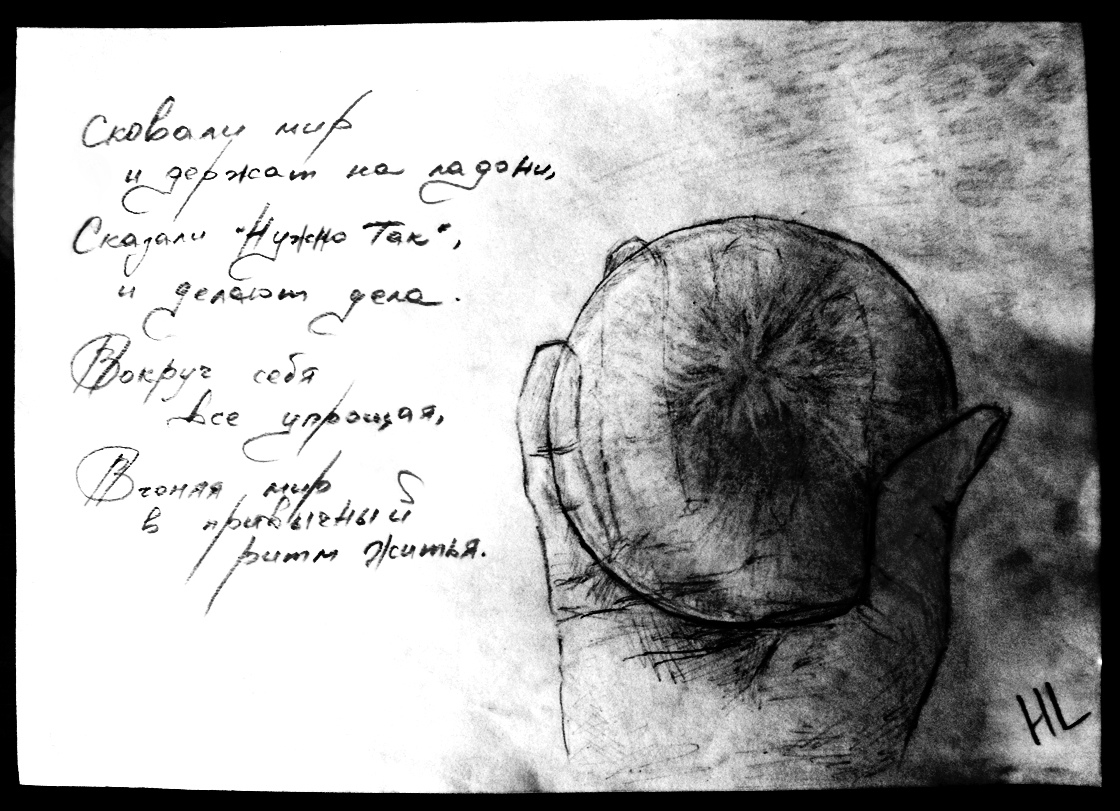 Сковали мир
и держат на ладони,
Сказали "Нужно Так",
и делают дела.
Вокруг себя
все упрощая,
Вгоняя мир
в привычный
ритм житья.
HL